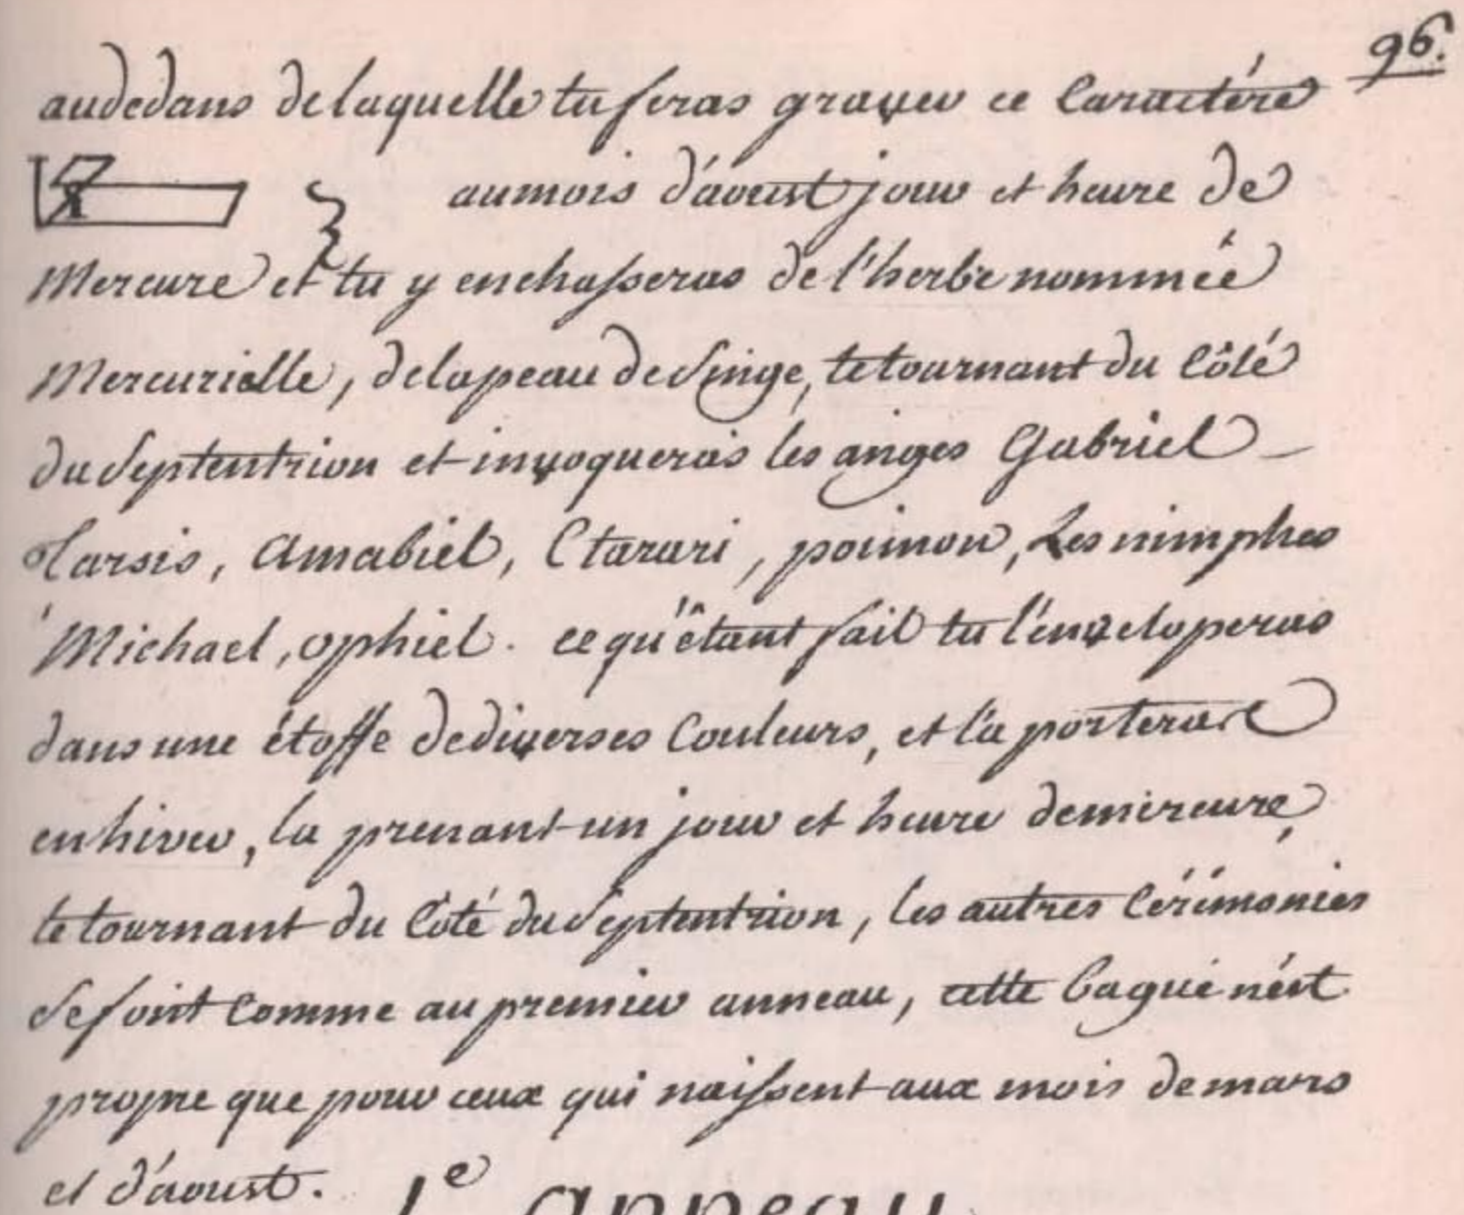 96.
audedans delaquelle tu feras graver ce Caractére
aumois d'avoust jour et heure de
Mercure et tu y enchasseras de l'herbe nommée
Mercurielle, delapeau de Singe, te tournant du Côté
du Septentrion et invoqueras les anges Gabriel
Tarsis, Amabiel, Ctarari, poimon, Les nimphes
Michael, ophiel. ce qu'êtant fait tu l'énveloperas
dans une étoffe dediverses Couleurs, et la porteras
enhiver, la prenant un jour et heure demercure,
te tournant du Coté du Septentrion, les autres Cérémonies
Se font Comme au premier anneau, cette bague nést
propre que pour ceux qui naissent aux mois demars
et d'avoust.
anneau